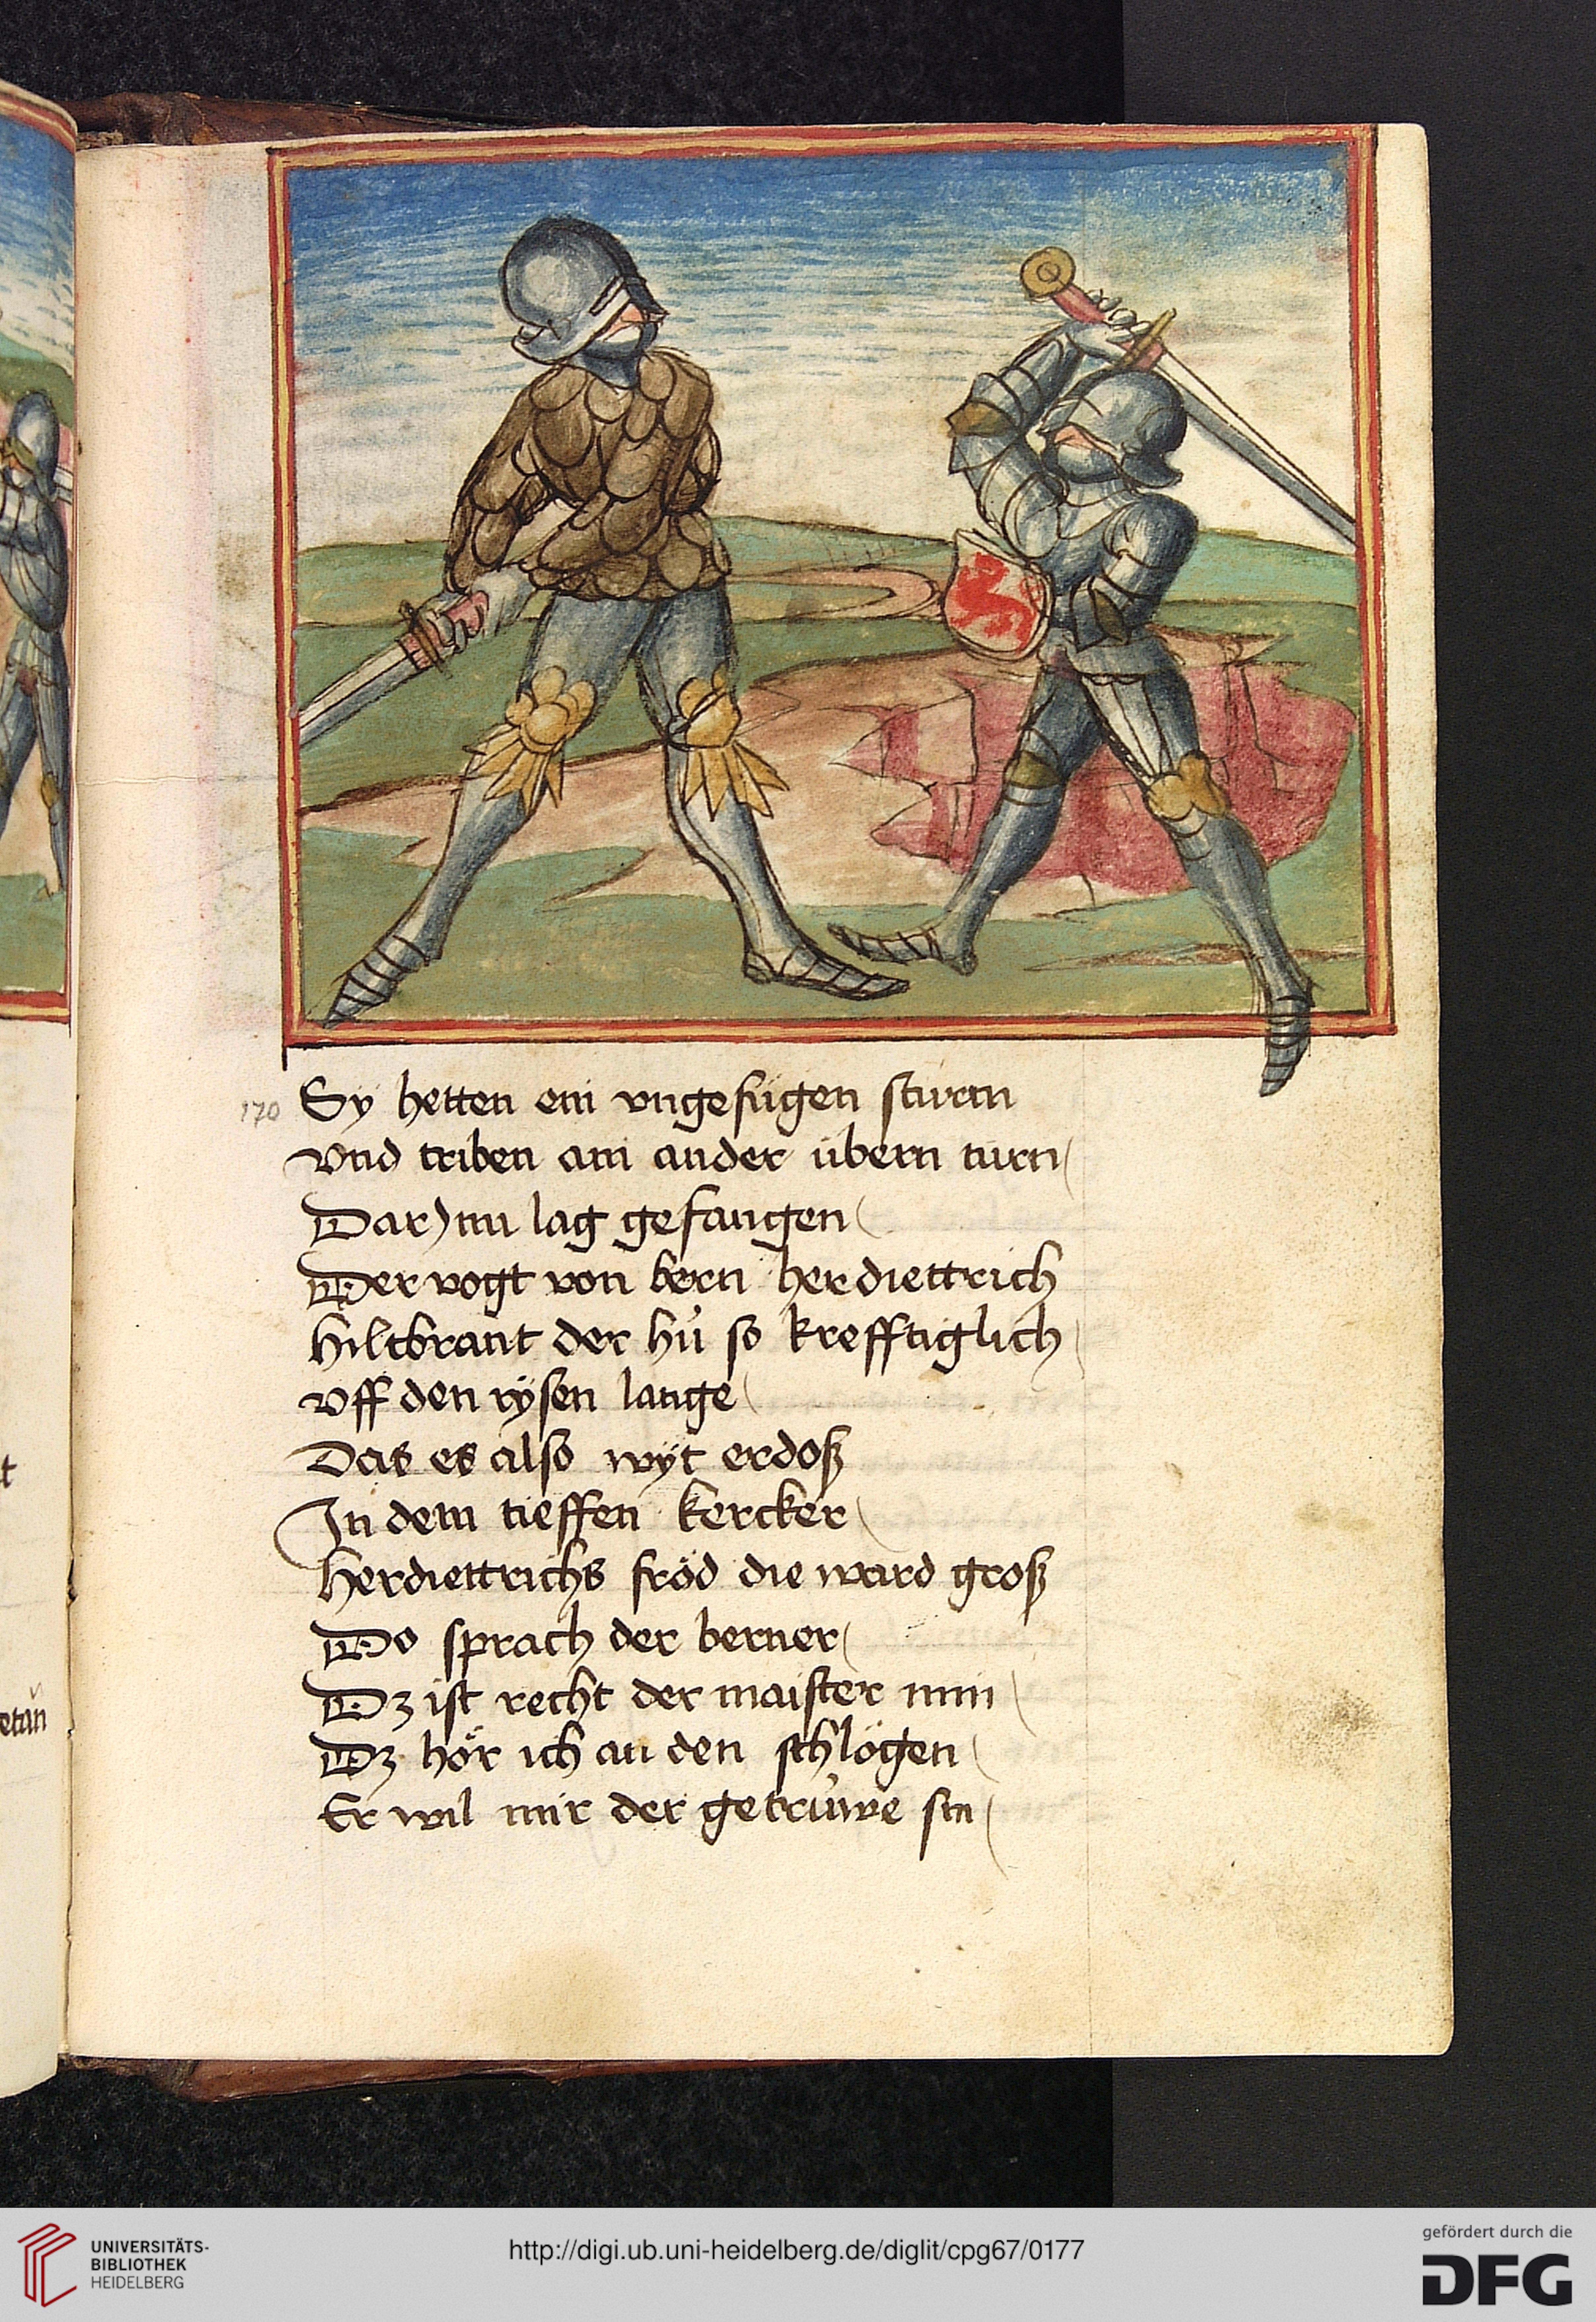 t
etan
170
Sy hetten ein vngefügen sturm
vnd triben ain ander übern turn
Dar Inn lag gefangen
Der vogt von bern her diettrich
hiltbrant der hů so krefftiglich
vff den rÿsen lange
Das es also wÿt erdoß
In dem tieffen kercker
Herdiettrichs fröd die ward groß
Do sprach der berner
Dz ist recht der maister min
Dz hör ich an den schlögen
Er wil mir der getrüwe sin
UNIVERSITÄTS-
BIBLIOTHEK
HEIDELBERG
http://digi.ub.uni-heidelberg.de/diglit/cpg67/0177
gefördert durch die
DFG